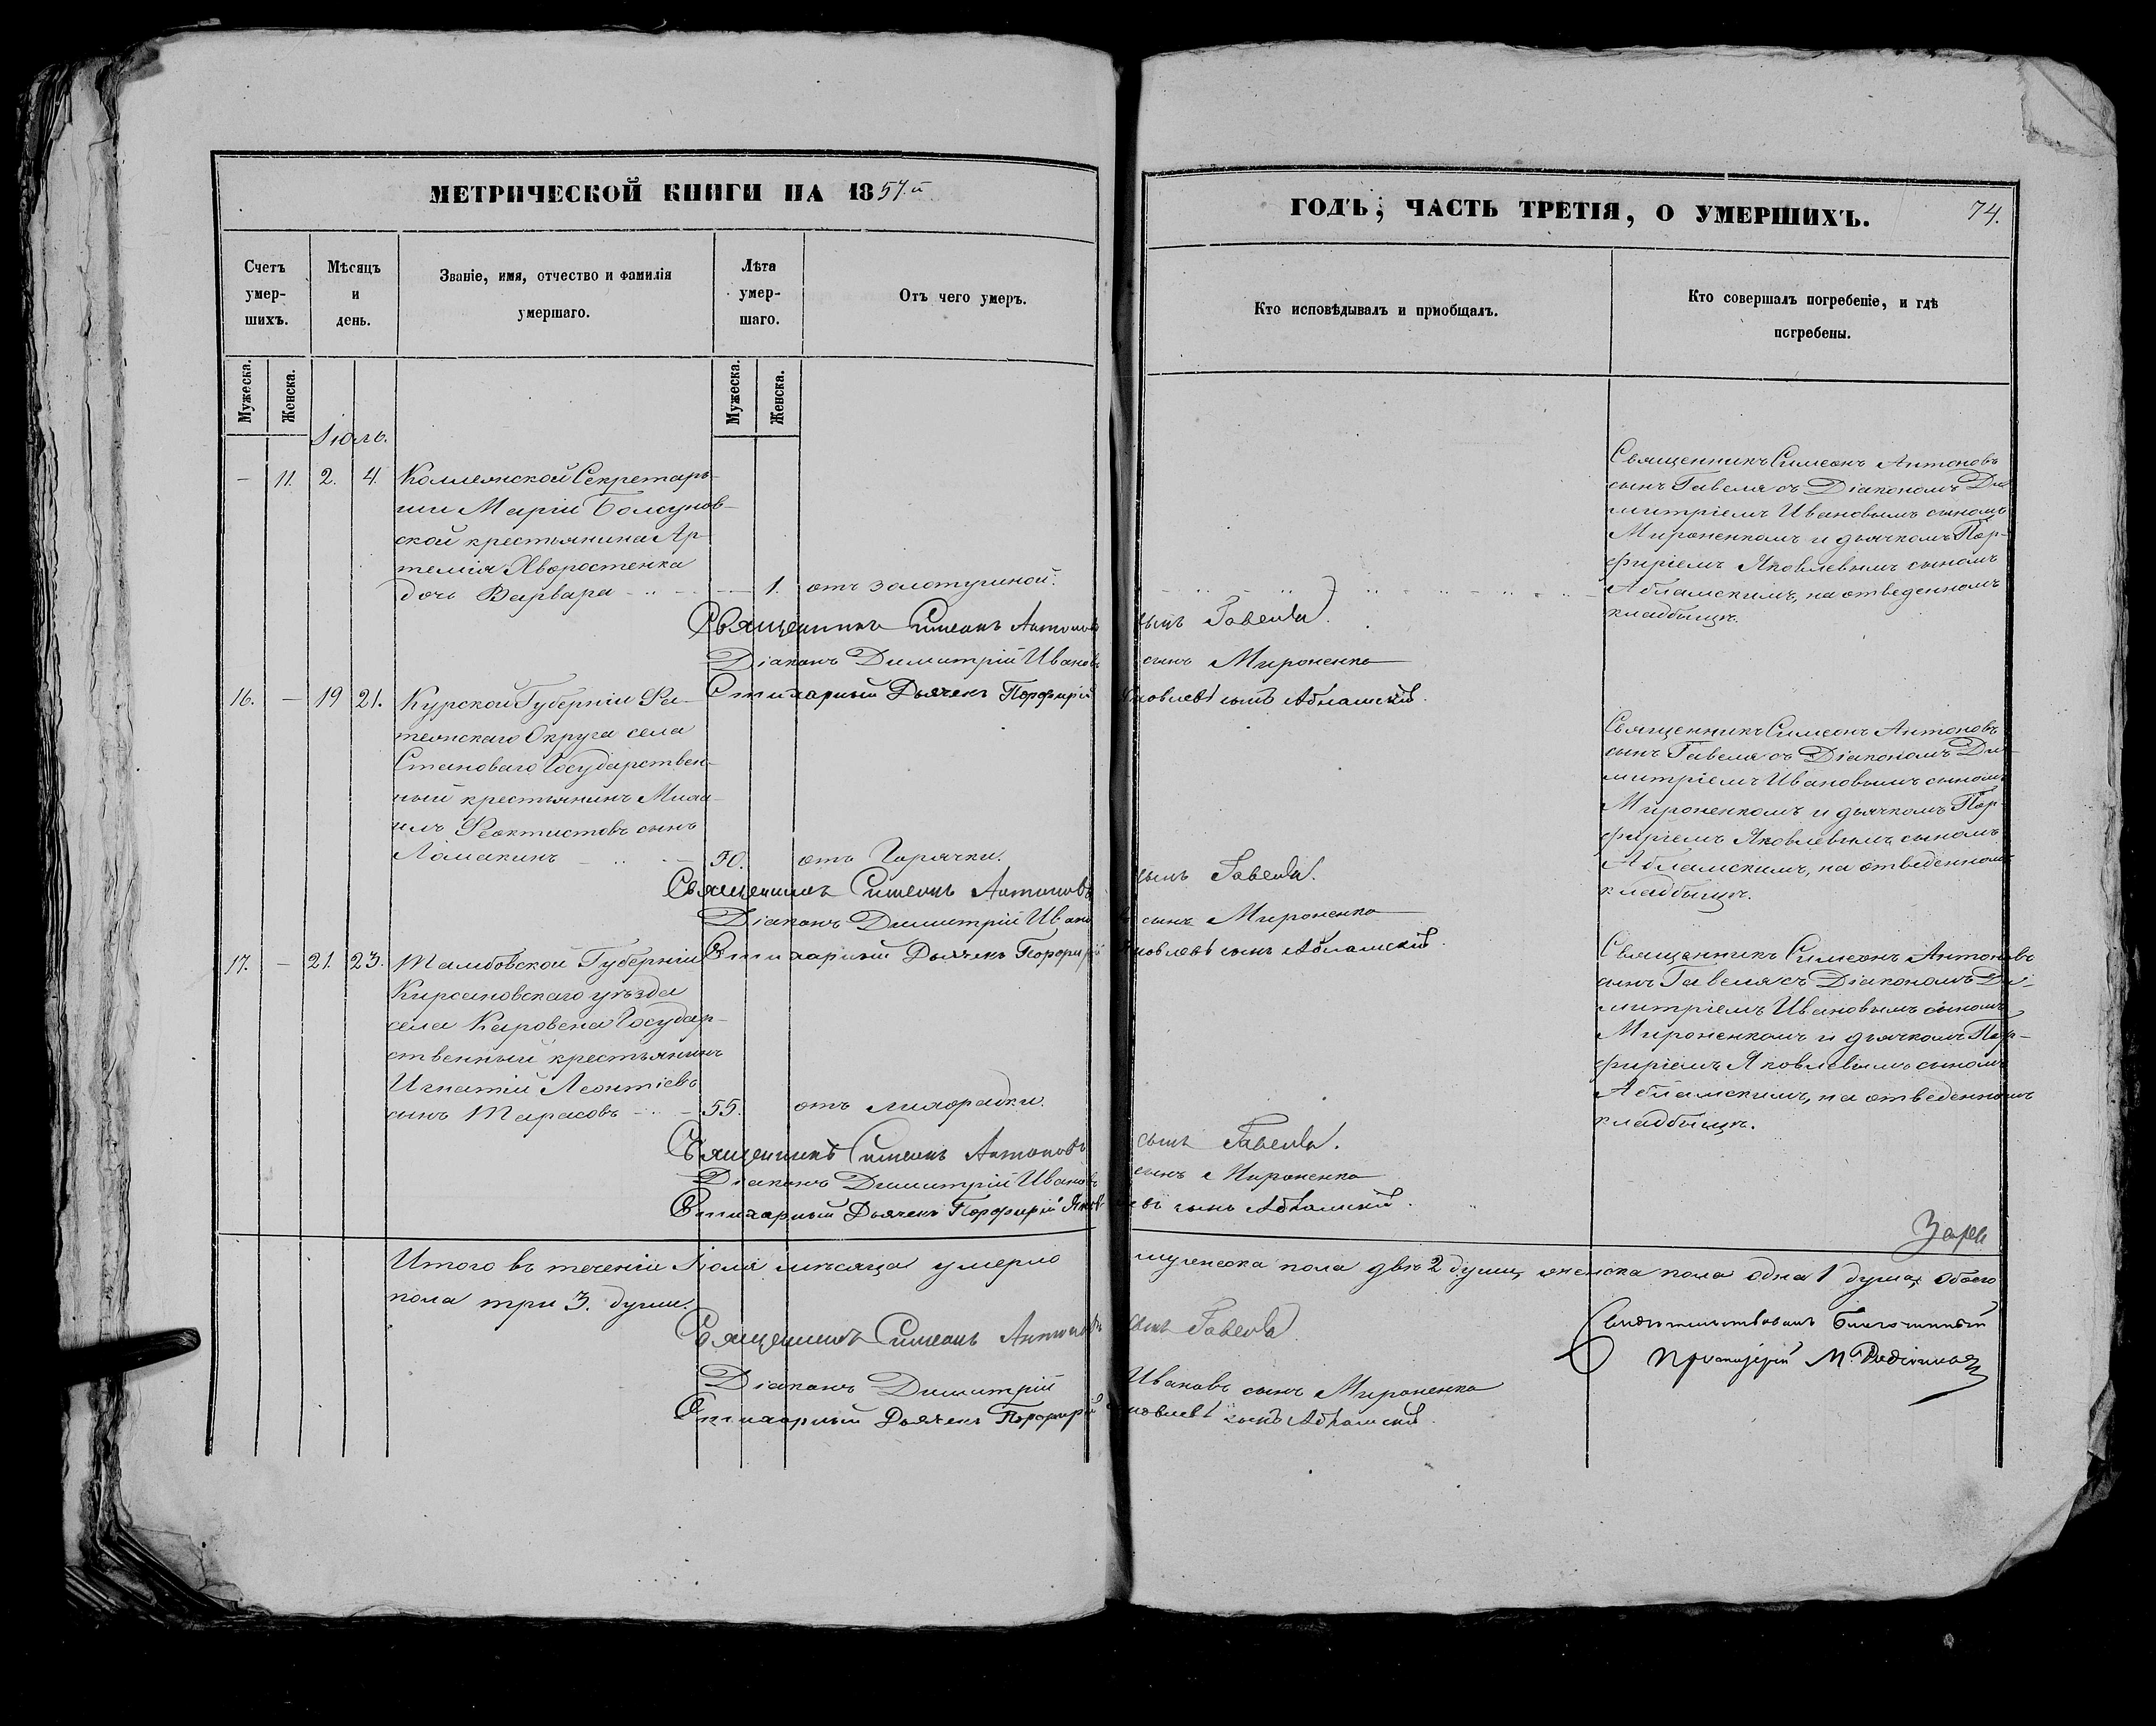 МЕТРИЧЕСКОЙ КНИГИ НА 1857.й
ГОДЪ, ЧАСТЬ ТРЕТІЯ, О УМЕРШИХЪ.
74.
Счетъ умер-шихъ.
Мѣсяцъ и день.
Званіе, имя, отчество и фамилія умершаго.
Лѣта умер-шаго.
Отъ чего умеръ.
Кто исповѣдывалъ и пріобщалъ.
Кто совершалъ погребеніе, и гдѣ погребены.
Мужеска.
Женска.
Мужеска.
Женска.
Іюль.
— 11. 2. 4. Коллежской Секретарь-
ши Маріи Болсунов-
ской крестьянина Ар-
темія Яворостенка
дочь Варвара — 1. отъ золотушной.
Священникъ Симеонъ Антоновъ
сынъ Гавеля съ Діакономъ Ди-
митріемъ Ивановымъ сыномъ
Мироненкомъ и дьячкомъ Пор-
фиріемъ Яковлевымъ сыномъ
Абламскимъ, на отведенномъ
кладбищѣ.
Священникъ Симеонъ Антоновъ сынъ Гавеля.
Діаконъ Димитрій Ивановъ сынъ Мироненко
Стихарный Дьячекъ Порфирій Яковлевъ сынъ Абламскій.
16. — 19 21. Курской Губерніи Фа-
тежскаго Округа села
Становаго Государствен-
ный крестьянинъ Миха-
илъ Феоктистовъ сынъ
Ломакинъ — 50. отъ Горячки.
Священникъ Симеонъ Антоновъ
сынъ Гавеля съ Діакономъ Ди-
митріемъ Ивановымъ сыномъ
Мироненкомъ и дьячкомъ Пор-
фиріемъ Яковлевымъ сыномъ
Абламскимъ, на отведенномъ
кладбищѣ.
Священникъ Симеонъ Антоновъ сынъ Гавеля.
Діаконъ Димитрій Ивановъ сынъ Мироненко
Стихарный Дьячекъ Порфирій Яковлевъ сынъ Абламскій.
17. — 21. 23. Тамбовской Губерніи
Кирсановскаго уѣзда
села Каровена Государ-
ственный крестьянинъ
Игнатій Леонтіевъ
сынъ Тарасовъ — 55. отъ лихорадки.
Священникъ Симеонъ Антоновъ
сынъ Гавеля съ Діакономъ Ди-
митріемъ Ивановымъ сыномъ
Мироненкомъ и дьячкомъ Пор-
фиріемъ Яковлевымъ сыномъ
Абламскимъ, на отведенномъ
кладбищѣ.
Священникъ Симеонъ Антоновъ сынъ Гавеля.
Діаконъ Димитрій Ивановъ сынъ Мироненко
Стихарный Дьячекъ Порфирій Яковлевъ сынъ Абламскій.
Итого въ теченіи Іюля мѣсяца умерло мужеска пола двѣ 2 души, женска пола одна 1 душа, обоего
пола три 3. души.
Священникъ Симеонъ Антоновъ сынъ Гавеля.
Діаконъ Димитрій Ивановъ сынъ Мироненко
Стихарный Дьячекъ Порфирій Яковлевъ сынъ Абламскій.
Свидѣтельствовалъ Благочинный
Протоіерей М.